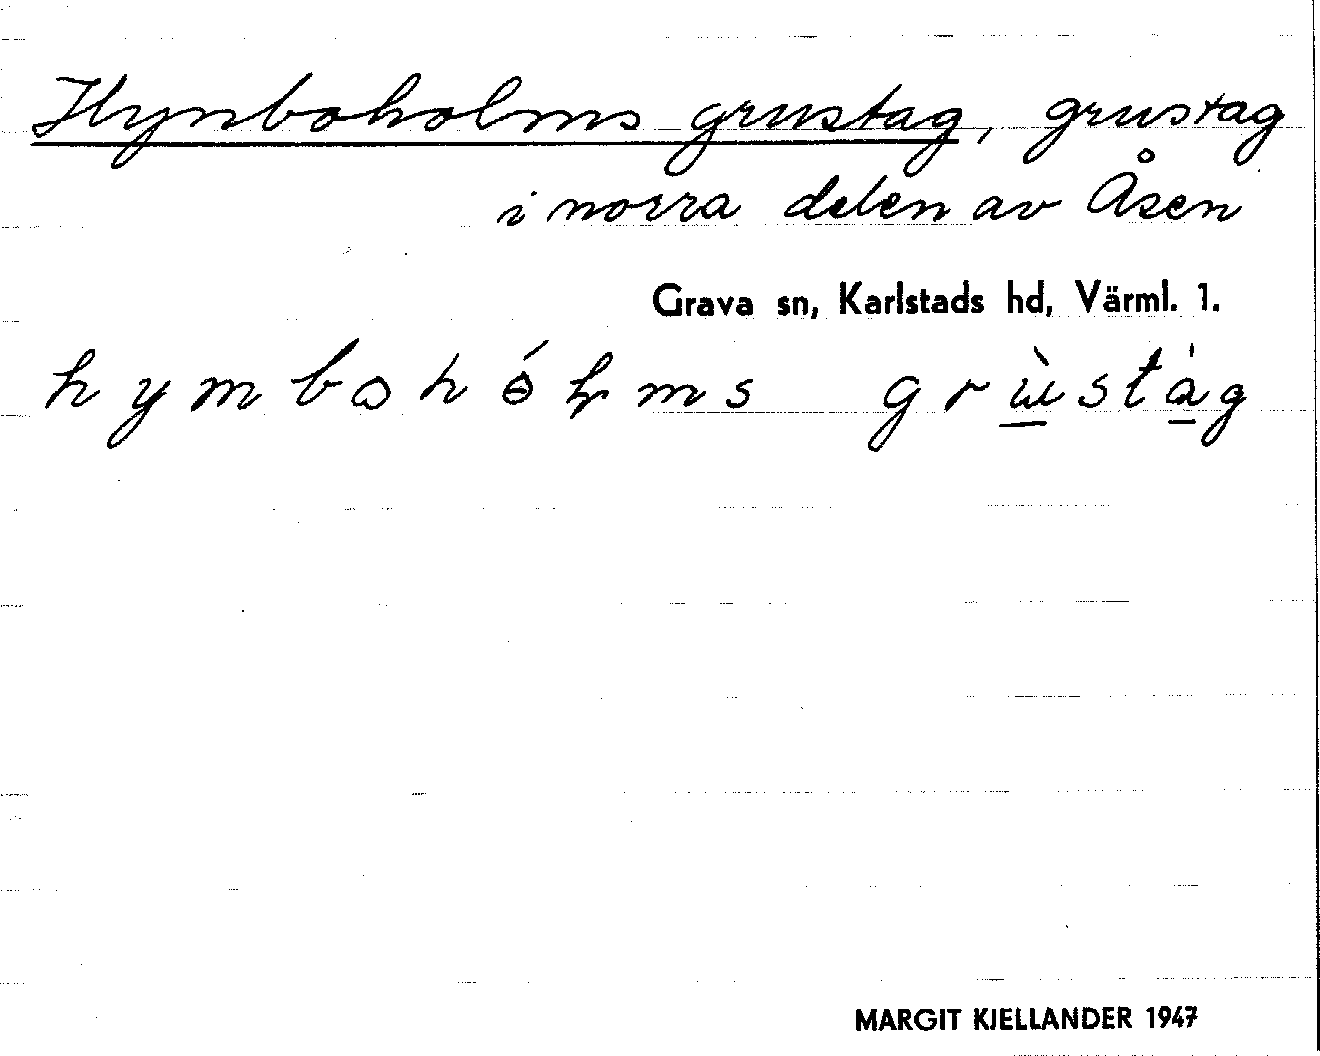 Hynboholms grustag, grustag
i norra delen av Åsen
Grava sn, Karlstads hd, Värml. 1.
hymbohó̵ḷms grùstàg
MARGIT KJELLANDER 1947